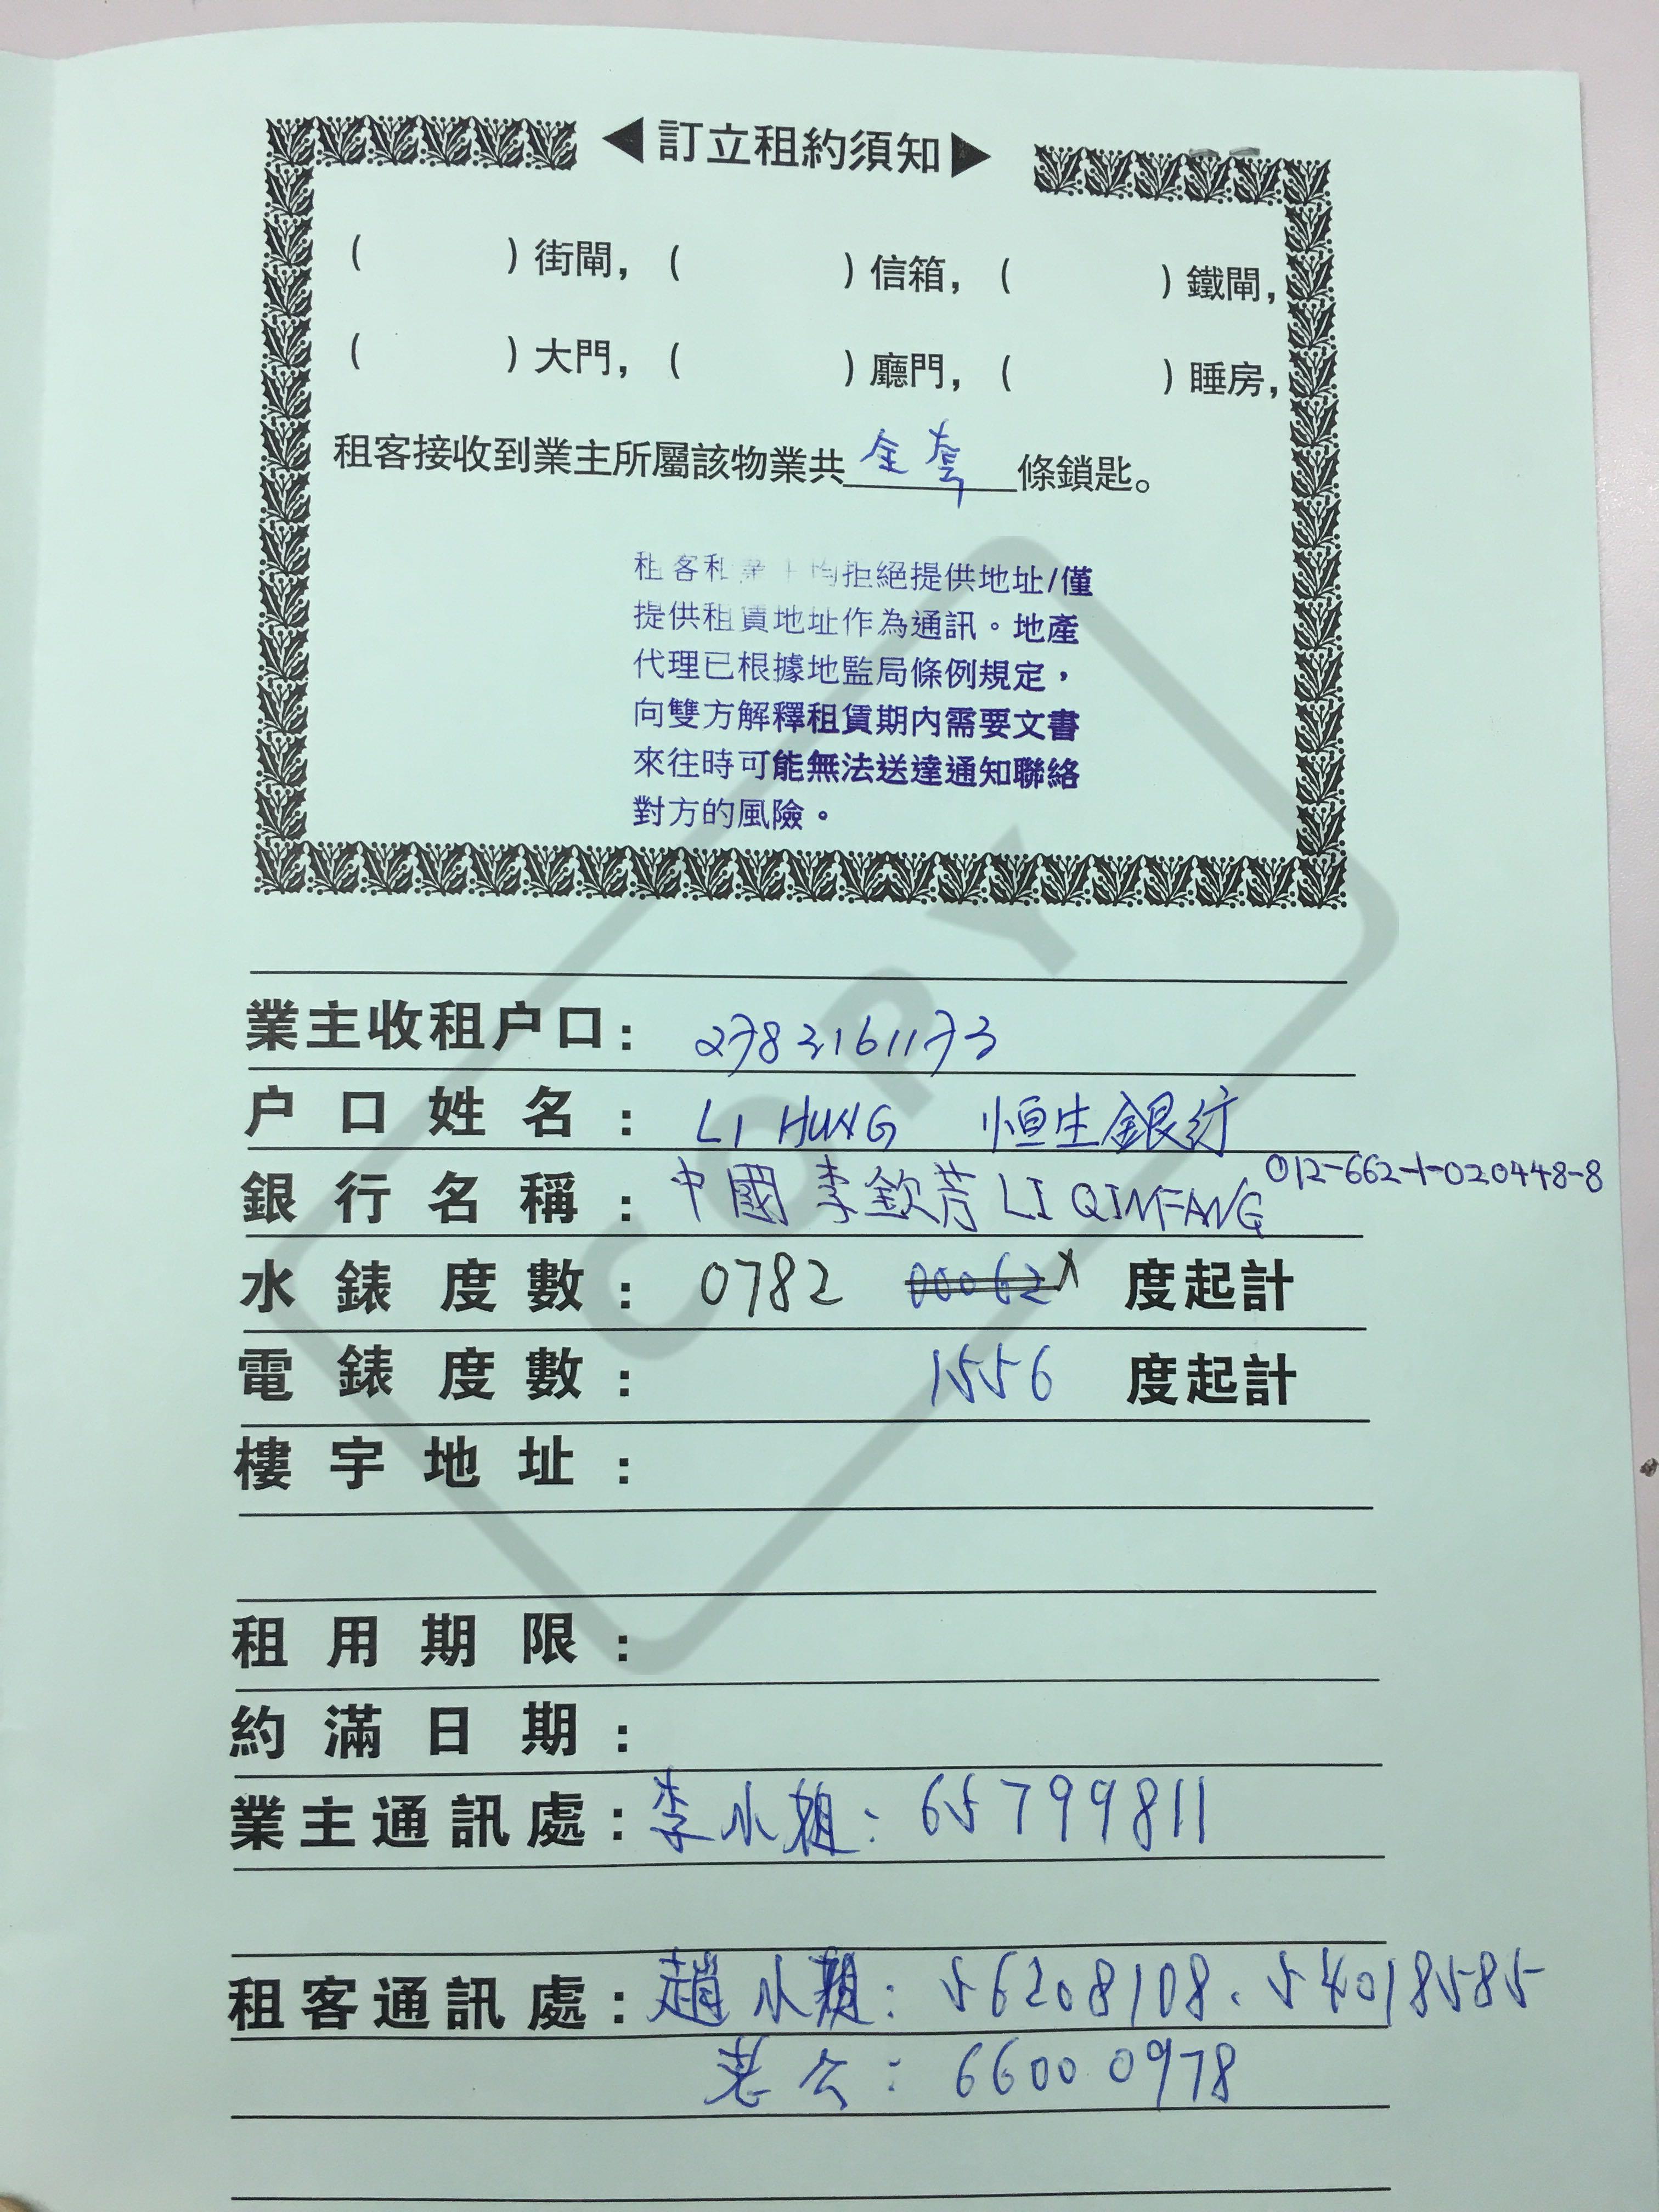 ◀訂立租約須知▶
(　　　)街閘，(　　　)信箱，(　　　)鐵閘，
(　　　)大門，(　　　)廳門，(　　　)睡房，
租客接收到業主所屬該物業共 全套 條鎖匙。
租客和業主均拒絕提供地址/僅
提供租賃地址作為通訊。地產
代理已根據地監局條例規定，
向雙方解釋租賃期內需要文書
來往時可能無法送達通知聯絡
對方的風險。
COPY
業主收租户口：2783161173
户口姓名：LI HUNG 恒生銀行
銀行名稱：中國 李欽芳 LI QINFANG 012-662-1-020448-8
水錶度數：0782 00062 X 度起計
電錶度數：1556 度起計
樓宇地址：
租用期限：
約滿日期：
業主通訊處：李小姐：65799811
租客通訊處：趙小姐：56208108、54018585
老公：66000978